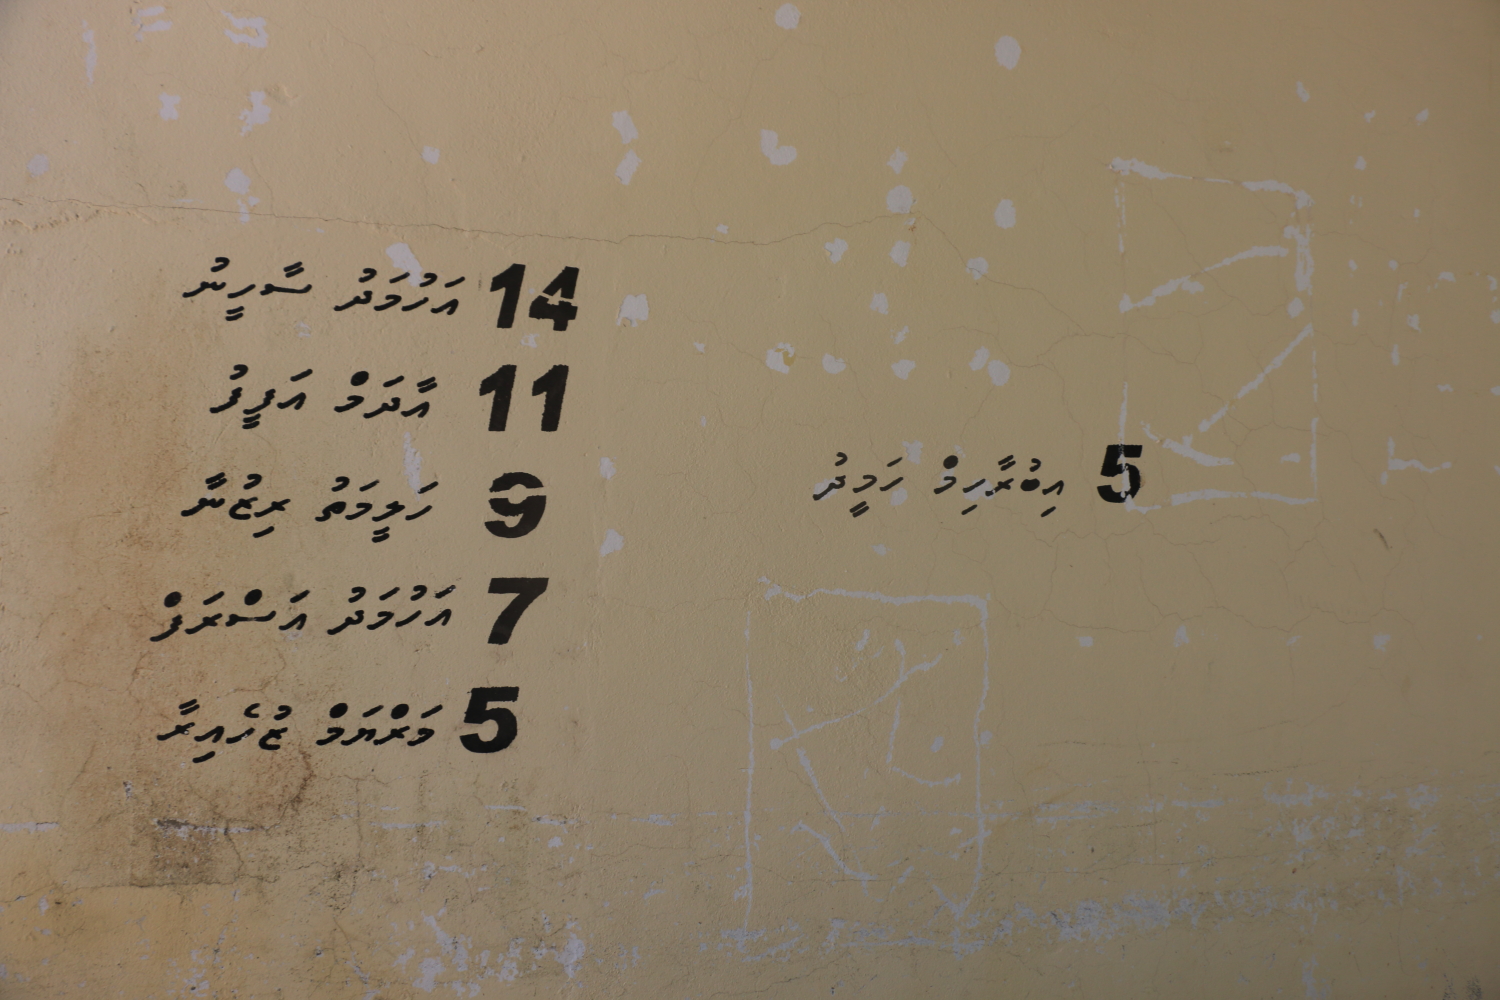 އަހުމަދު ސާހިނު 14
އާދަމް އަފީފު 11
ހަލީމަތު ރިޒުނާ 9
އަހުމަދު އަސްރަފް 7
މަރްޔަމް ޒުހެއިރާ 5
އިބުރާހިމް ހަމީދު 5